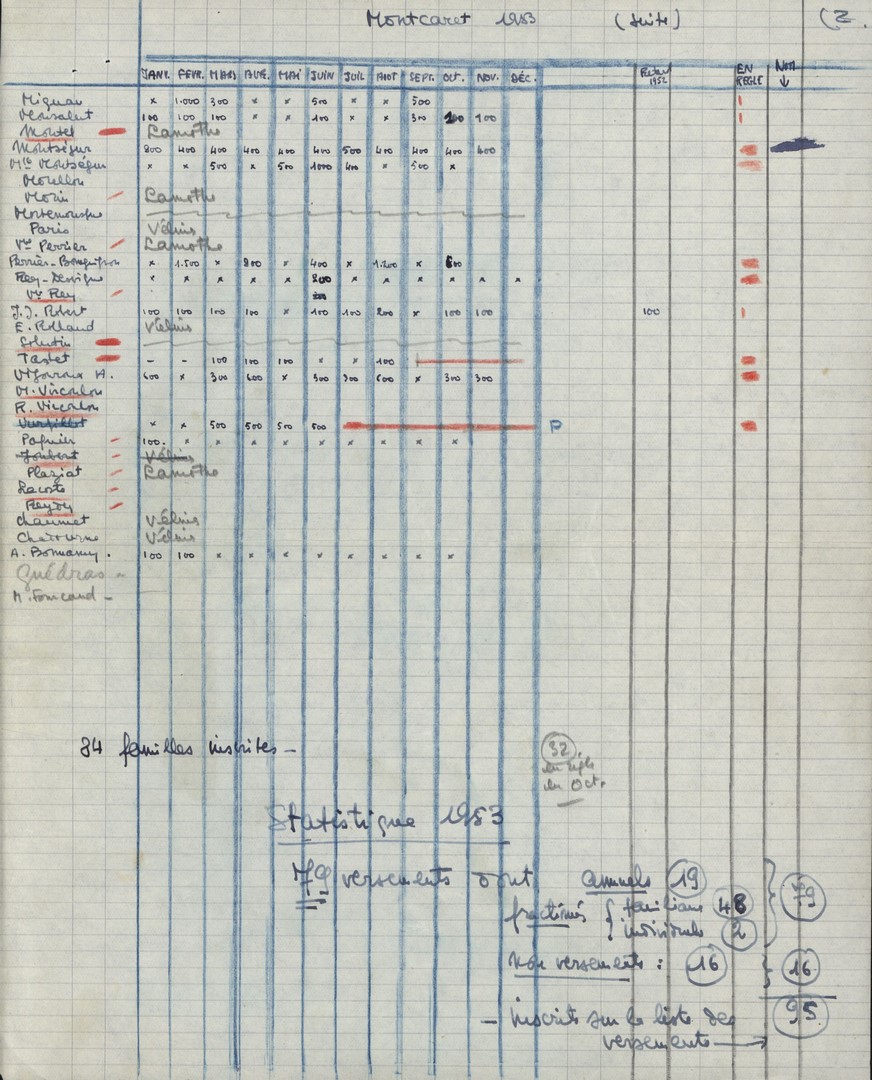 Montcaret 1953 (Suite) (2.
JANV. FEVR. MARS AVR. MAI JUIN JUIL AOUT SEPT. OCT. NOV. DÉC. Retard 1952 EN REGLE NON ↓
Mignan x 1.000 300 x x 500 x x 500
100 100 100 x x 100 x x 300 100 100
Montel Lamothe
Montségur 800 400 400 400 400 400 500 400 400 400 400
Mlle Montségur x x 500 x 500 1000 400 x 500 x
Morillon
Morin Lamothe
Paris Vélines
Vve Perrier Lamothe
x 1.500 x 800 x 400 x 1.200 x 600
x x x x 200 x x x x x x
Vve Rey
J.J. Robert 100 100 100 100 x 100 100 200 x 100 100 100
E. Rolland Vélines
Tastet - - 100 100 100 x x 100
Vigouroux H. 600 x 300 600 x 300 300 600 x 300 300
M. Vircoulon
R. Vircoulon
x x 500 500 500 500 P
100. x x x x x x x x x
Joubert Vélines
Plaziat Lamothe
Lacoste
Chaumet Vélines
Vélines
A. Bonnamy. 100 100 x x x x x x x x
Guédras -
M. Foucaud -
84 familles inscrites -
32. en règle en Oct.
Statistique 1953
79 versements dont annuels 19
fractionnés { familiaux 48 } 79
individuels 2
Non versements : 16 } 16
- inscrits sur la liste des 95
versements →